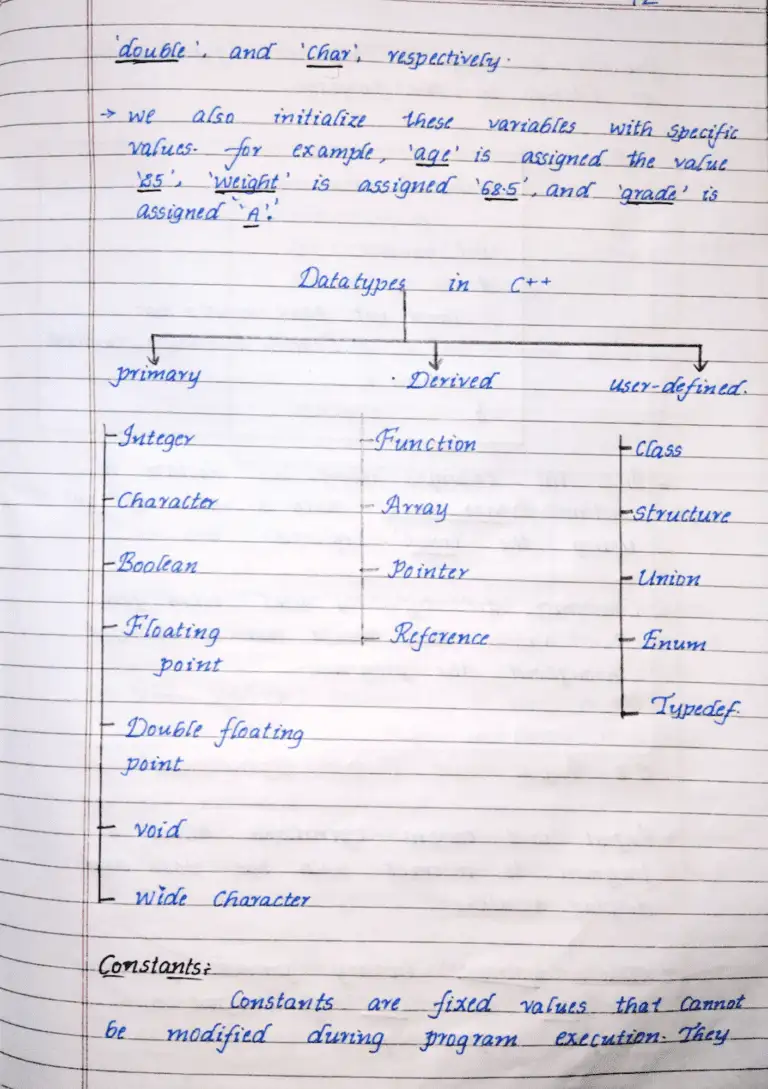 'double', and 'char', respectively.
→ we also initialize these variables with specific
values. for example, 'age' is assigned the value
'25', 'weight' is assigned '68.5', and 'grade' is
assigned 'A'.
Datatypes in C++
primary Derived user-defined.
Integer Function Class
Character Array structure
Boolean Pointer Union
Floating Reference Enum
point
Typedef.
Double floating
point
void
wide Character
Constants:
Constants are fixed values that cannot
be modified during program execution. They